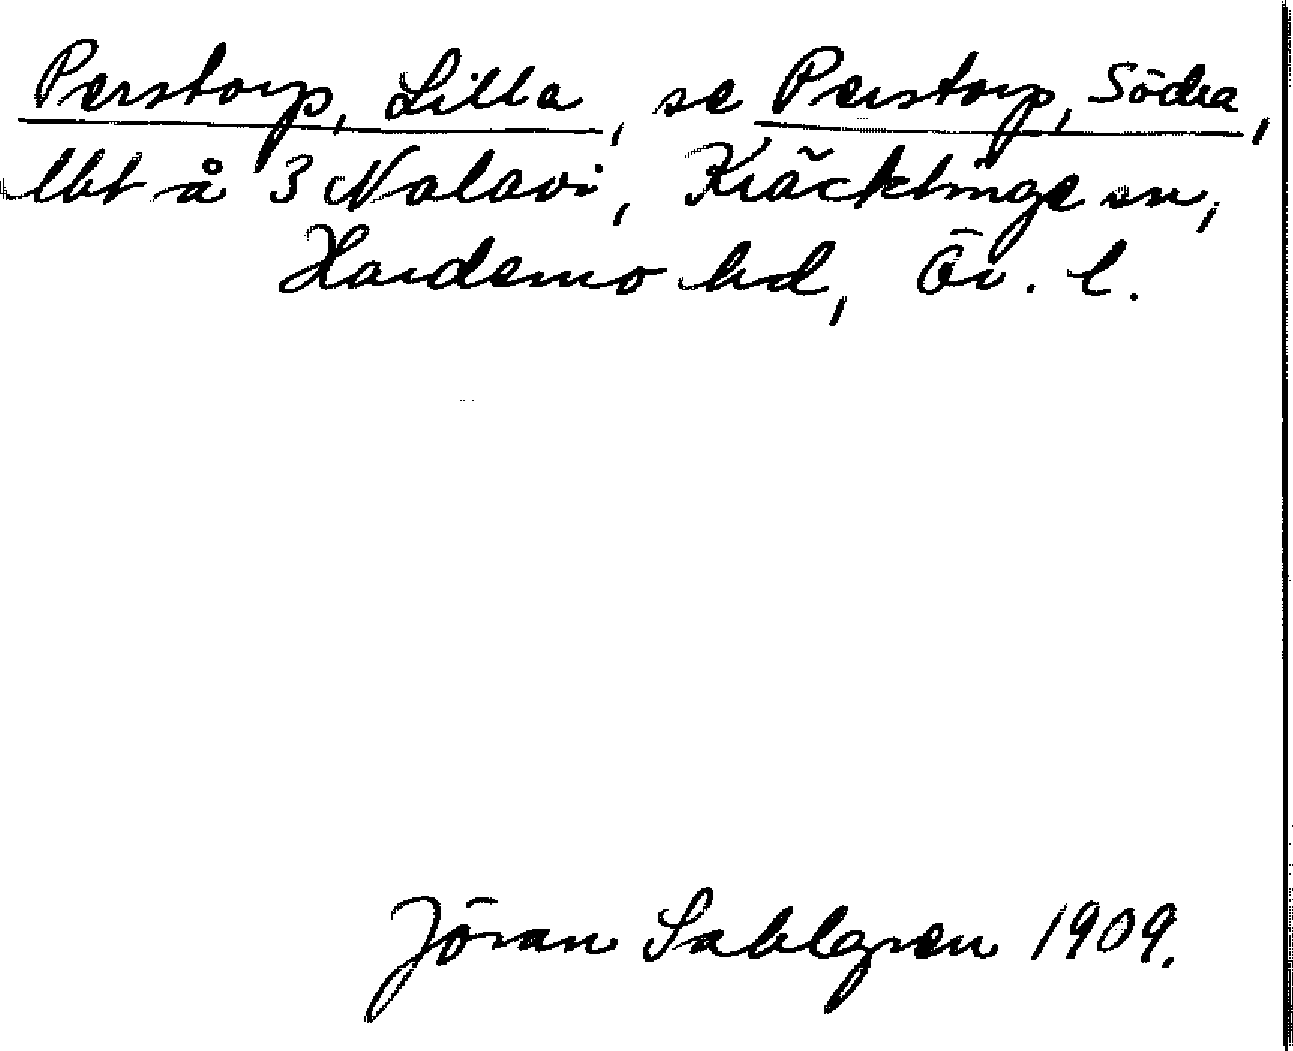 Perstorp, Lilla, se Perstorp, Södra,
lht å 3 Nalavi, Kräcklinge sn,
Hardemo hd, Ör. l.
Jöran Sahlgren 1909.